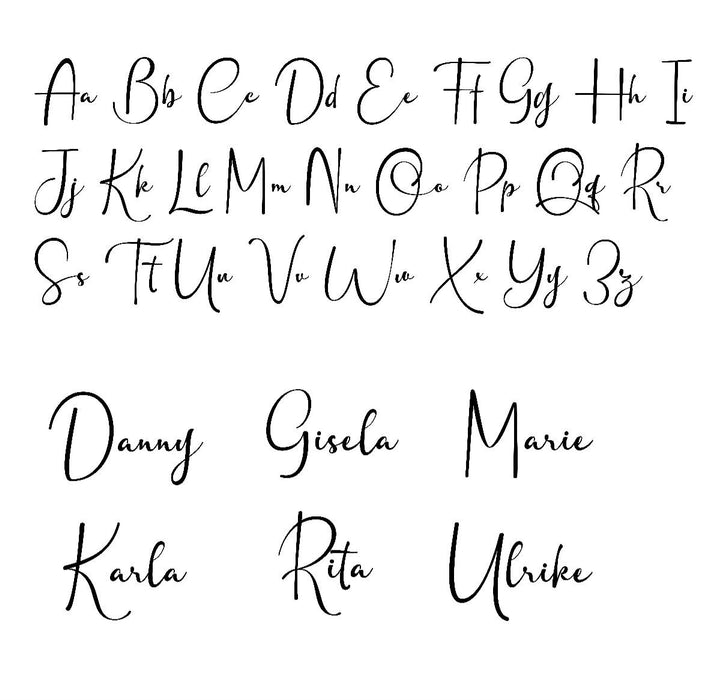 Aa Bb Cc Dd Ee Ff Gg Hh Ii
Jj Kk Ll Mm Nn Oo Pp Qq Rr
Ss Tt Uu Vv Ww Xx Yy Zz
Danny Gisela Marie
Karla Rita Ulrike